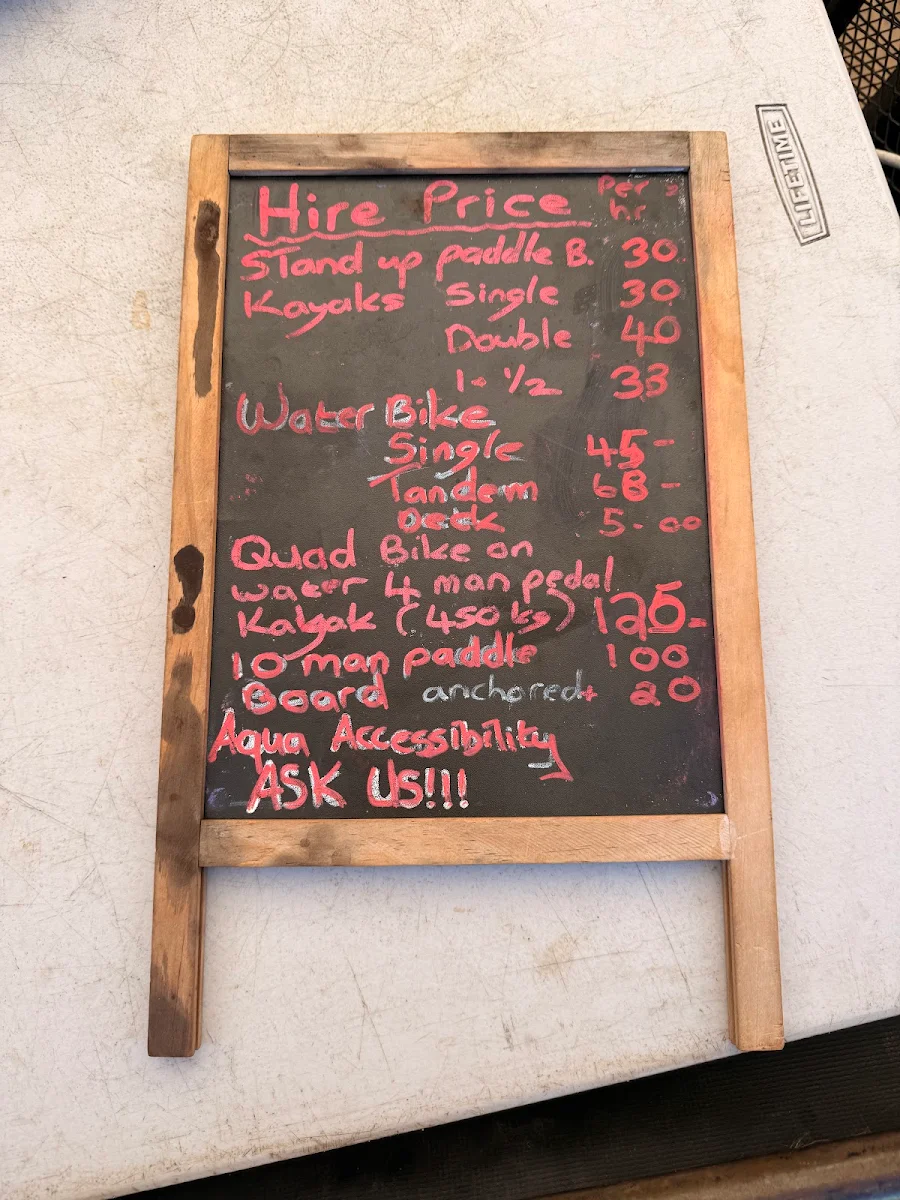 Hire Price Per hr
Stand up paddle B. 30
Kayaks Single 30
Double 40
1 - ½ 33
Water Bike
Single 45-
Tandem 68-
Deck 5-00
Quad Bike on
water 4 man pedal
Kayak (450 kg) 125-
10 man paddle 100
Board anchored + 20
Aqua Accessibility
ASK US!!!
LIFETIME